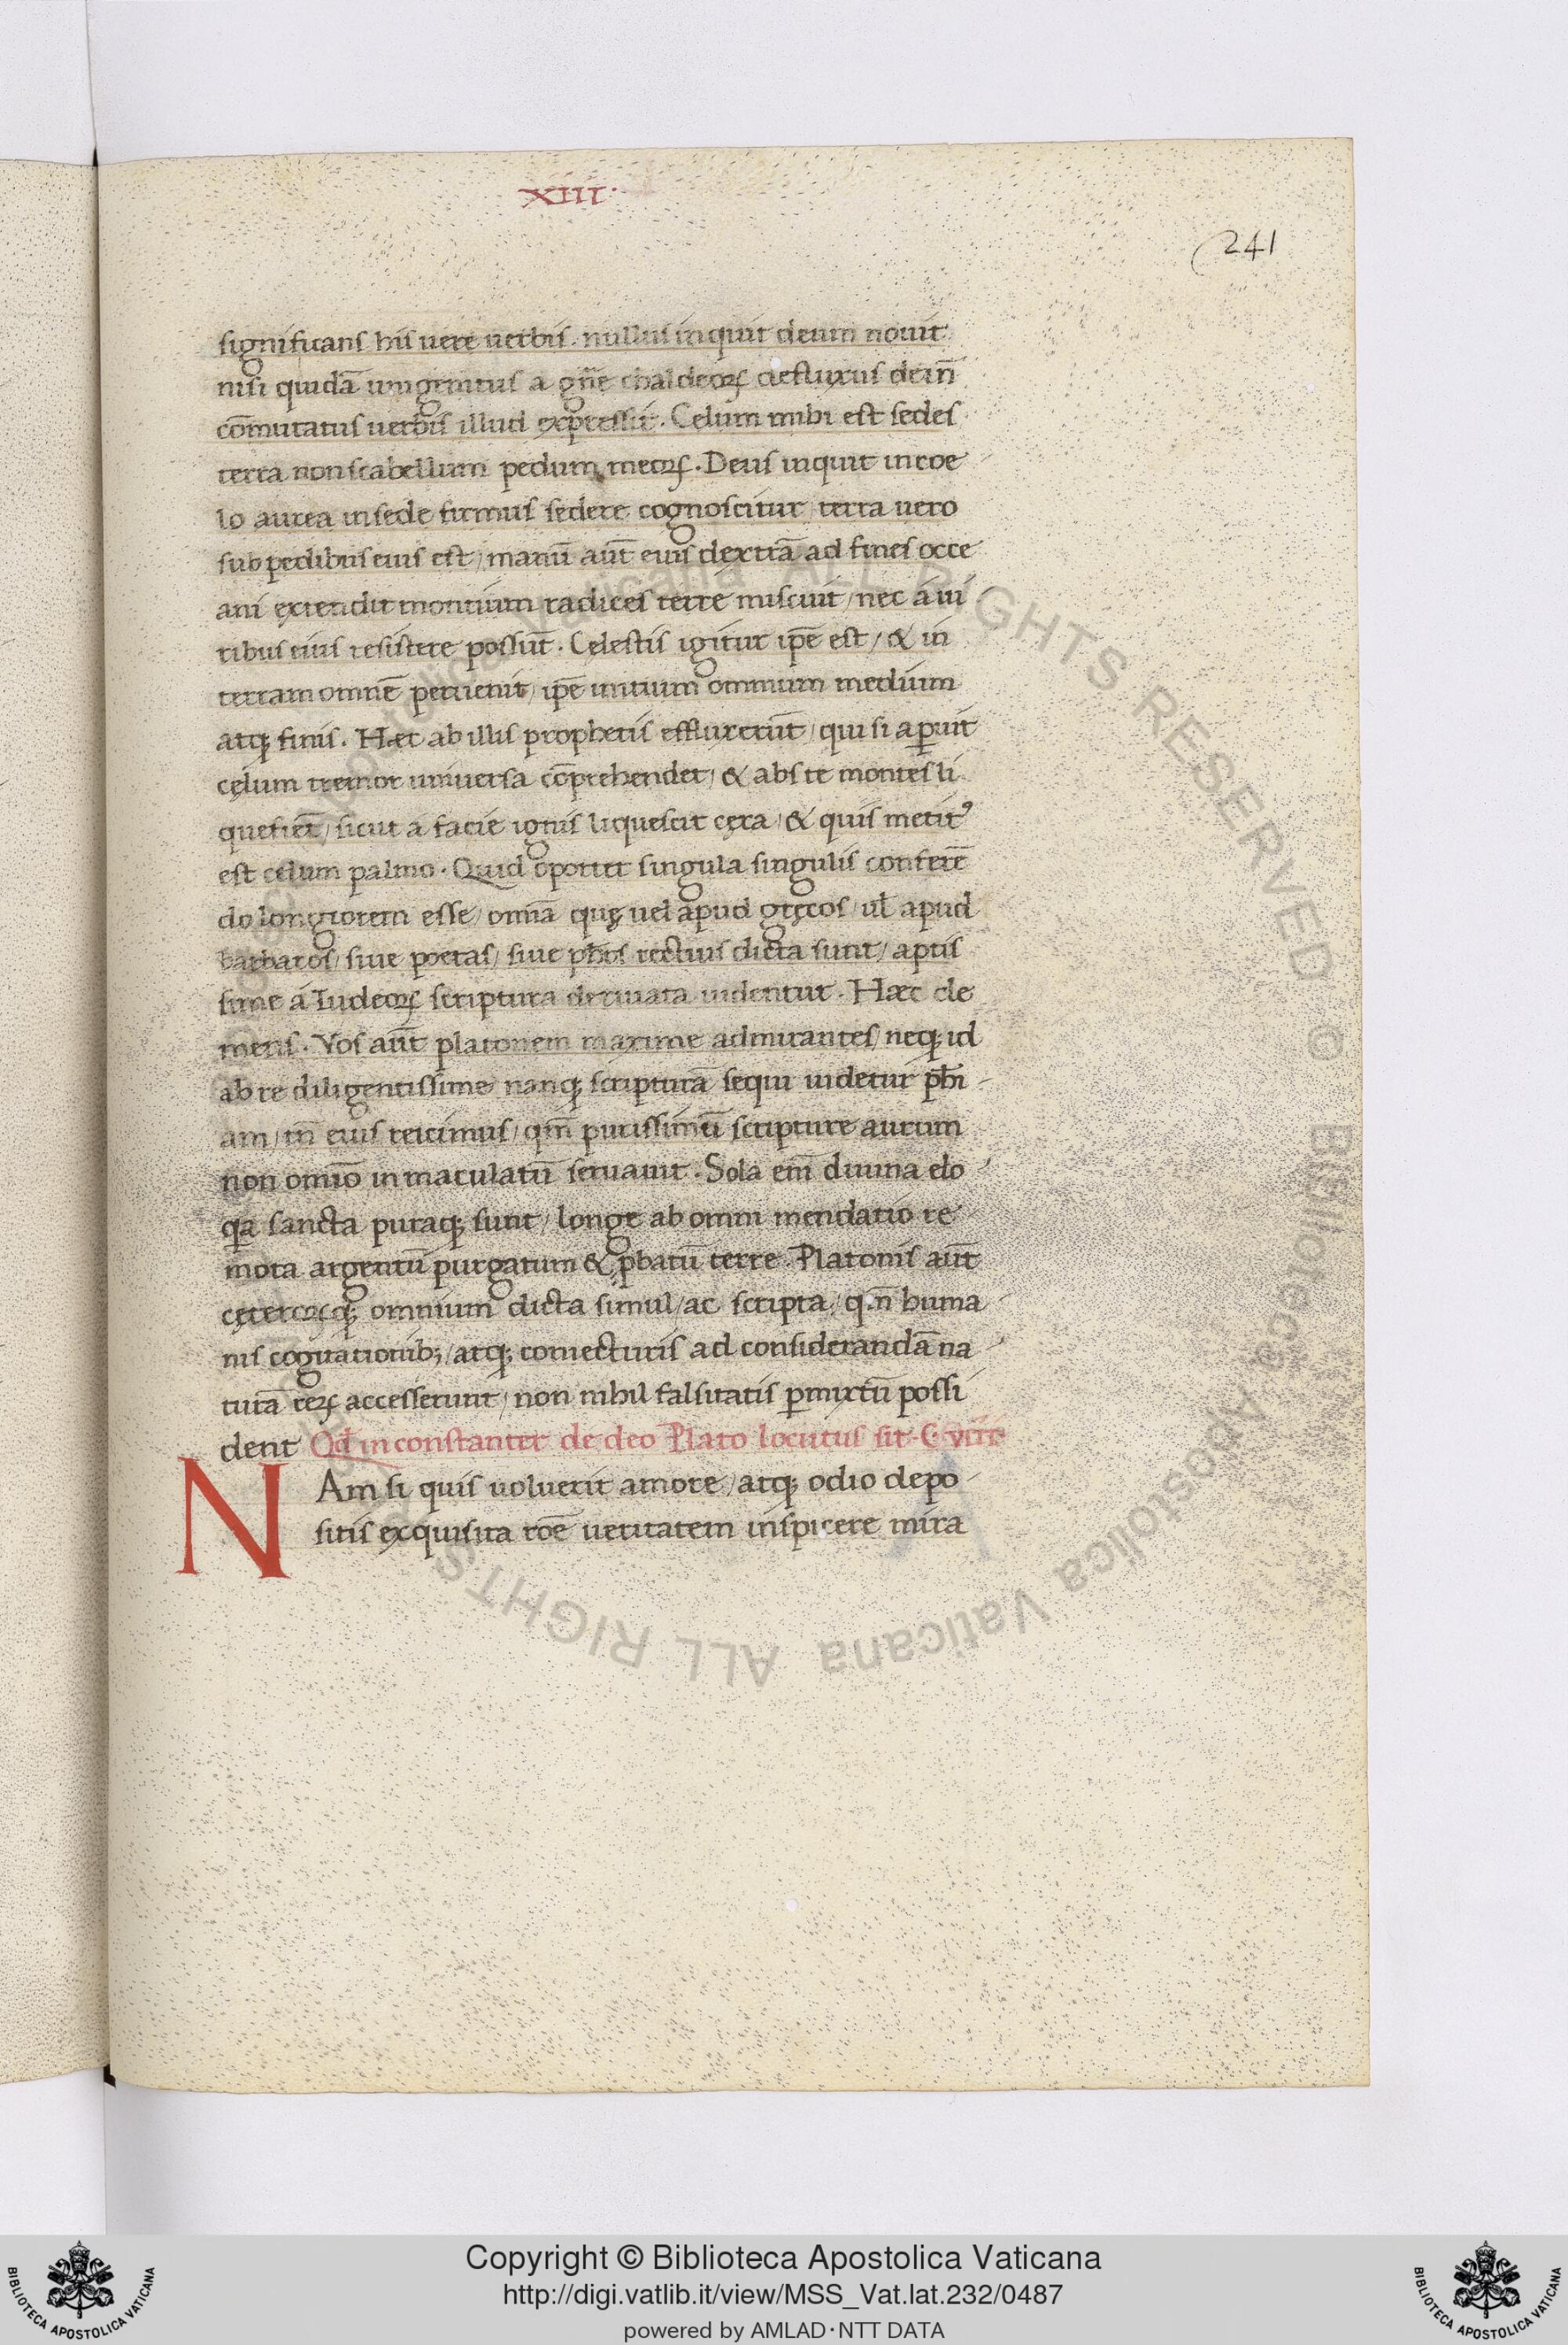 XIII·
241
significans his uere uerbis. nullus inquit deum nouit
nisi quidā unigenitus a gñe chaldeoꝝ defluxus dein̄
cōmutatus uerbis illud expressit. Celum mihi est sedes
terra non scabellum pedum meoꝝ. Deus inquit in coe
lo aurea in sede firmus sedere cognoscitur / terra uero
sub pedibus eius est / manū aūt eius dextrā ad fines occe
ani extendit montium radices terre miscuit / nec á ui
ribus eius resistere possūt. Celestis igitur ip̄e est / & in
terram omnē peruenit / ip̄e initium omnium medium
atq; finis. Haec ab illis prophetis effluxerūt / qui si aꝑuit
cęlum tremor universa cōprehendet / & abs te montes li
quefiēt / sicut a facie ignis liquescit cęra / & quis metitꝰ
est celum palmo. Quid oportet singula singulis conferē
do longiorem esse / omīa quę uel apud gręcos / ul̄ apud
barbaros / siue poetas / siue ph̄os rectius dicta sunt / aptis
sime á Iudeoꝝ scriptura deriuata uidentur. Haec cle
mens. Vos aūt platonem maxime admirantes / neq; id
ab re diligentissime nanq; scripturā sequi uidetur ph̄i
am / tn̄ eius reicimus / qm̄ purissimū scripture aurum
non omīo in maculatū seruauit. Sola em̄ diuina elo
qa sancta puraq; sunt / longe ab omni mendatio re
mota argentū purgatum & ꝓbatū terre. Platonis aūt
cęteroꝝq; omnium dicta simul / ac scripta / qm̄ huma
nis cogitationib; / atq; coniecturis ad considerandā na
turā reꝝ accesserunt / non nihil falsitatis ꝑmixtū possi
dent Qđ in constanter de deo Plato locutus sit. C. VIII.
NAm si quis uoluerit amore / atq; odio depo
sitis exquisita rōe ueritatem inspicere mira
Copyright © Biblioteca Apostolica Vaticana
http://digi.vatlib.it/view/MSS_Vat.lat.232/0487
powered by AMLAD·NTT DATA
BIBLIOTECA APOSTOLICA VATICANA
BIBLIOTECA APOSTOLICA VATICANA
© Biblioteca Apostolica Vaticana ALL RIGHTS RESERVED